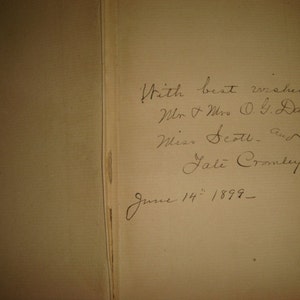 With best wishes
Mr & Mrs O G De
Miss Scott - and
Crowley
June 14" 1899 -